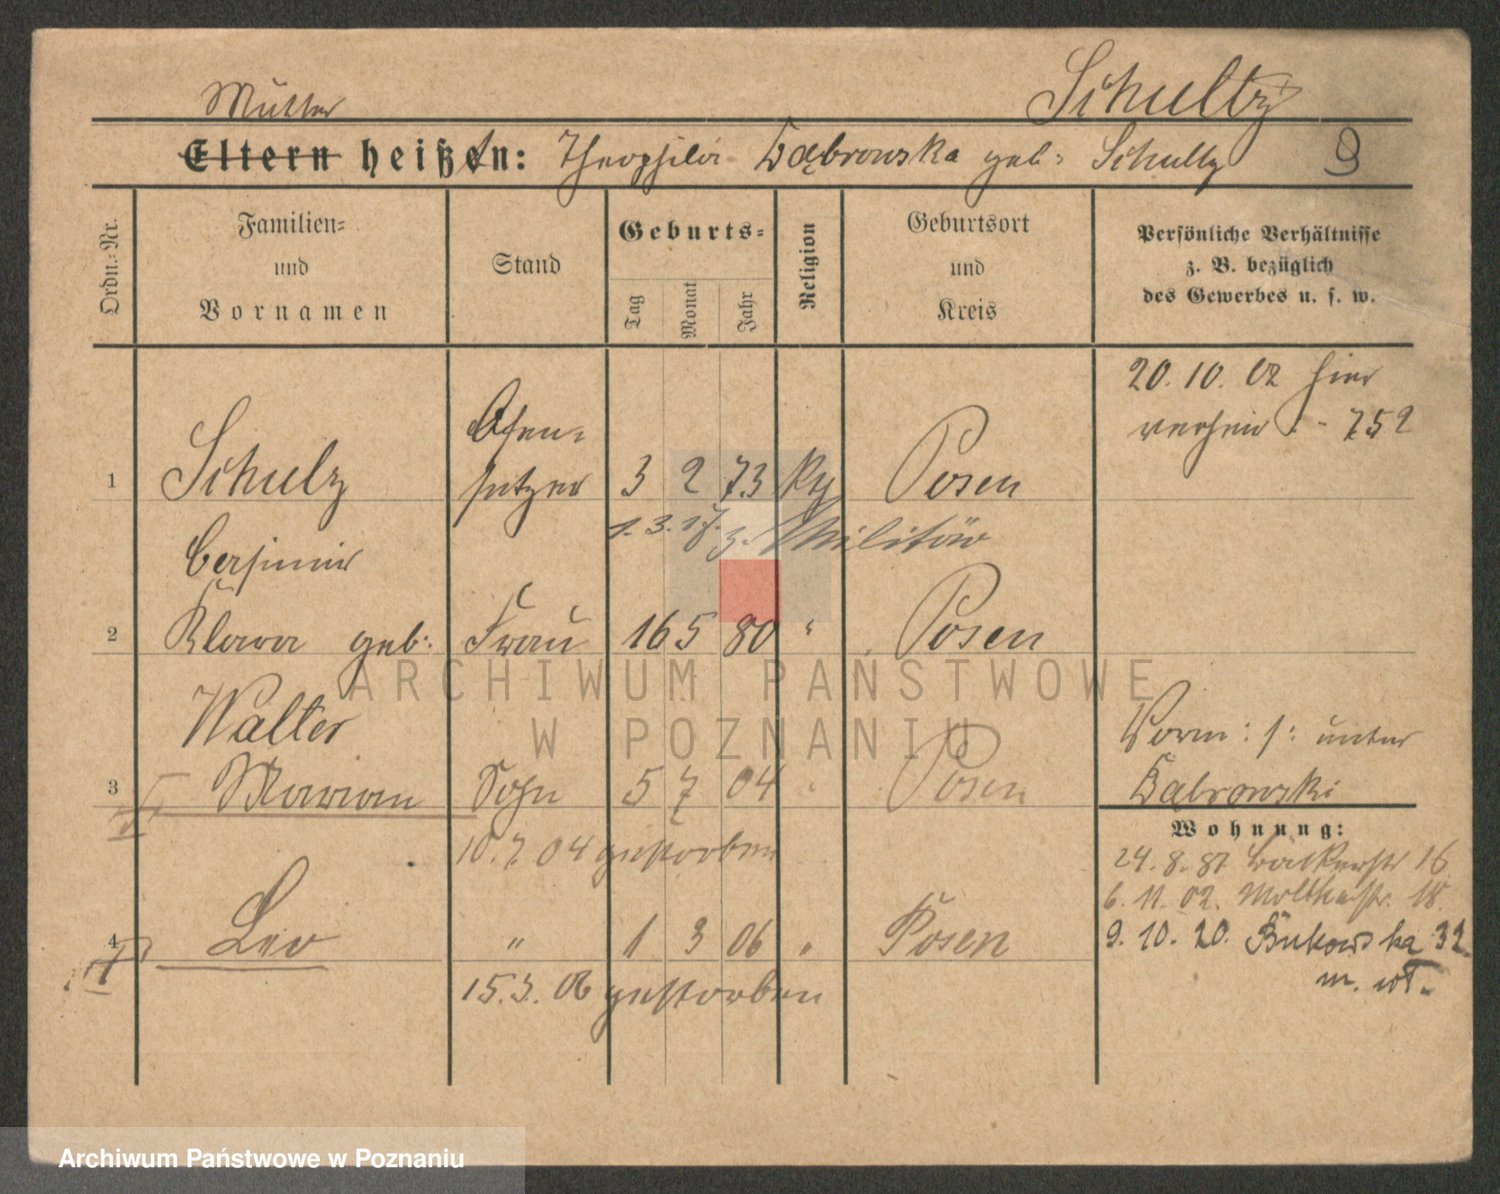 Schultz
Mutter
Eltern heißen: Theophila Dąbrowska geb: Schultz 9
Ordn.-Nr.
Familien-
und
Vornamen
Stand
Geburts-
Tag
Monat
Jahr
Religion
Geburtsort
und
Kreis
Persönliche Verhältnisse
z. B. bezüglich
des Gewerbes u. s. w.
20. 10. 02 hier
verheir. - 752
1 Schulz Ofen-
setzer 3 2 73 Posen
1. 3. z. Militär
Casimir
2 Klara geb: Frau 16 5 80 " Posen
Walter
3 Marian Sohn 5 7 04 " Posen
10. 7. 04 gestorben
4 Leo " 1 3 06 " Posen
15. 3. 06 gestorben
Vorm: s: unter
Dąbrowski
Wohnung:
24. 8. 87 Bäckerstr 16
6. 11. 02. Moltkestr. 18
9. 10. 20. Bukowska 32
ARCHIWUM PAŃSTWOWE
W POZNANIU
Archiwum Państwowe w Poznaniu